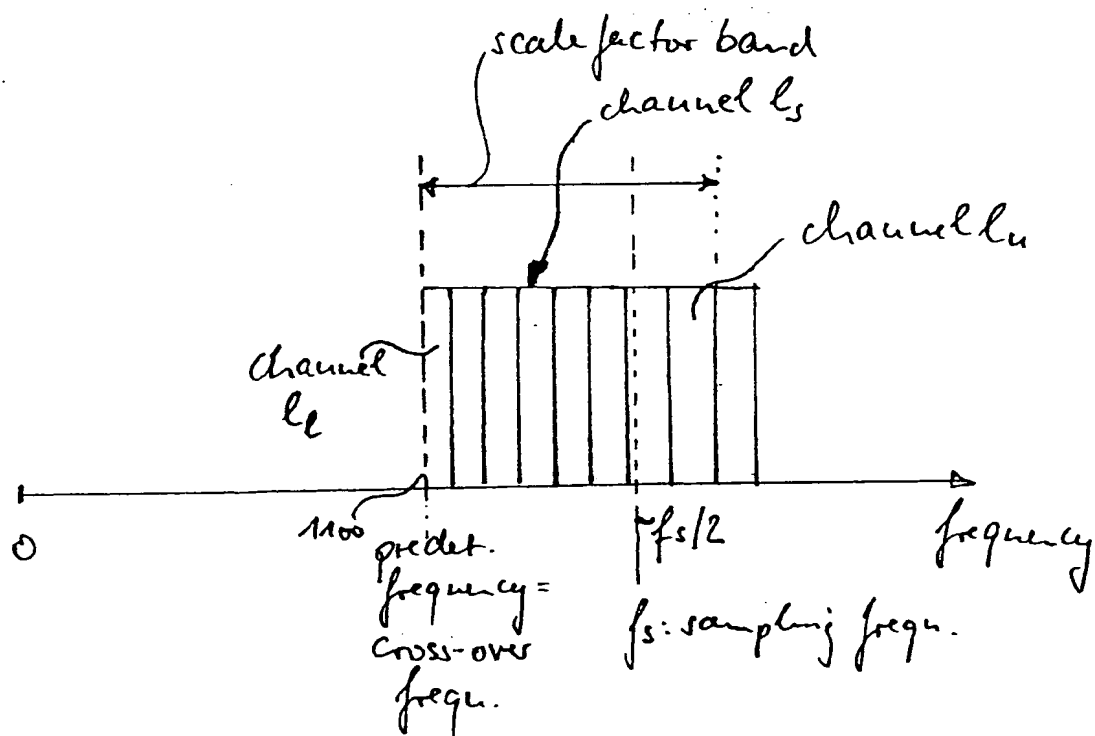 scale factor band
channel ls
channel lu
channel
ll
1100
0
predet.
frequency=
cross-over
frequ.
~fs/2
fs: sampling frequ.
frequency